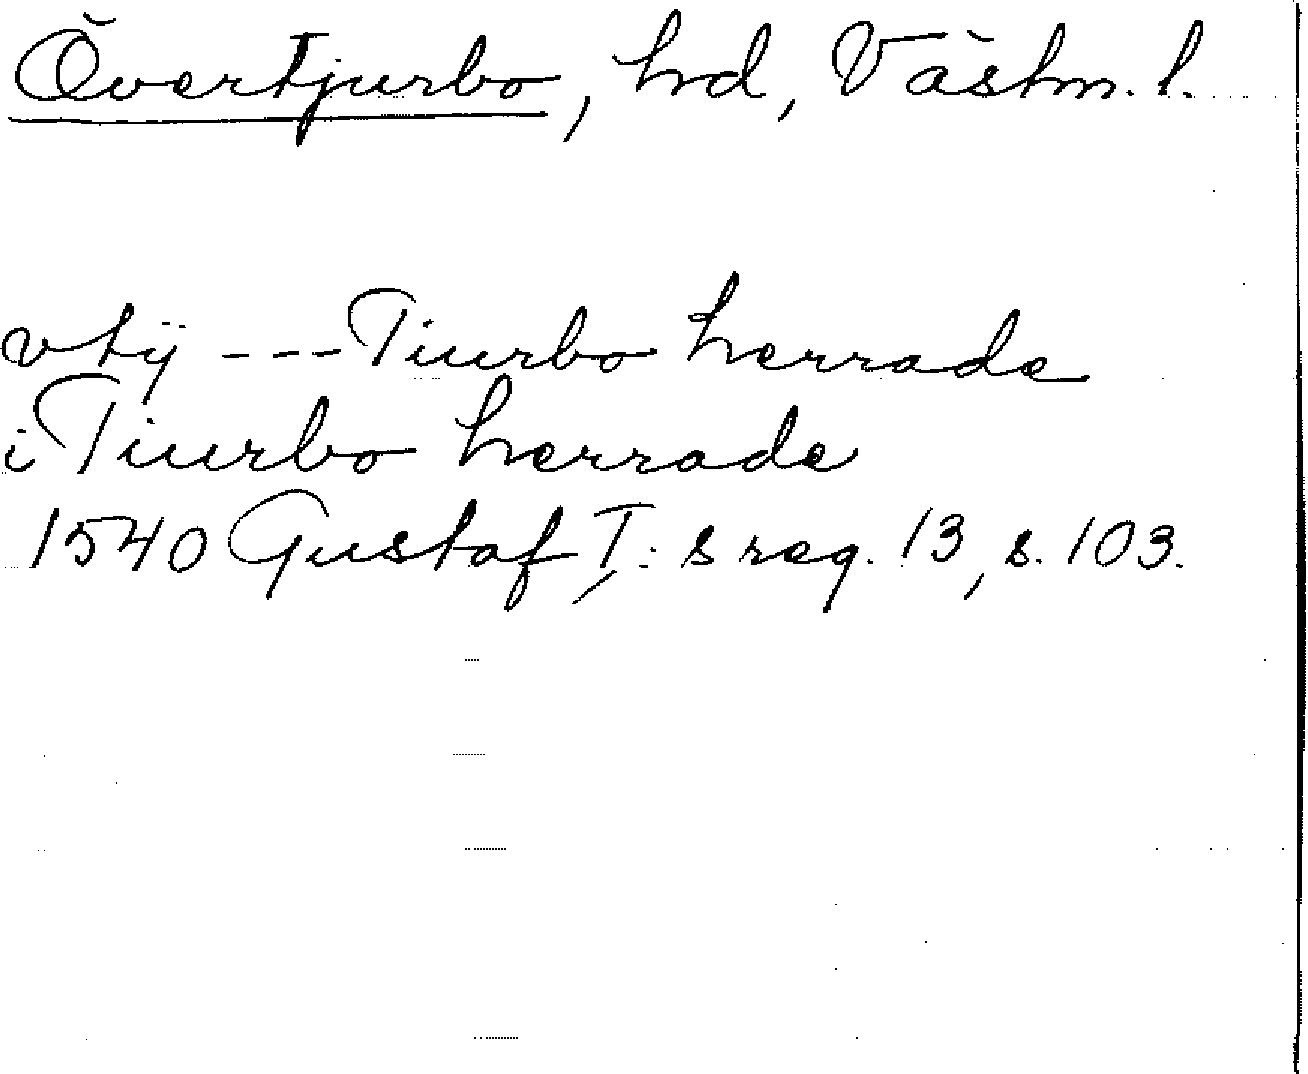 Övertjurbo, hd, Västm. l.
vtÿ --- Tiurbo herrade
i Tiurbo herrade
1540 Gustaf I: s reg. 13, s. 103.